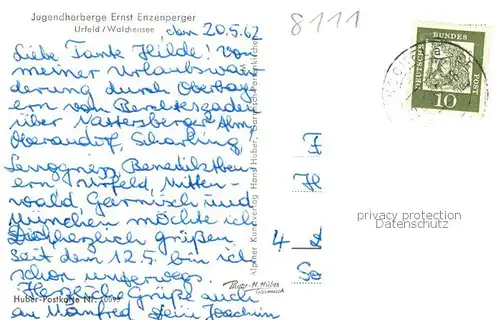 Jugendherberge Ernst Enzenperger
Urfeld / Walchensee
den 20.5.62
8111
Liebe Tante Hilde! Von
meiner Urlaubswan
derung durch Oberbay
ern von Berchtesgaden
über Nattersberger Alm,
Oberaudorf, Scharling,
Lenggries, Benediktbeu
ern, Urfeld, Mitten-
wald Garmisch und
München möchte ich
Dich herzlich grüßen
seit dem 12.5. bin ich
schon unterwegs.
Herzliche Grüße auch
an Manfred Dein Joachim
Huber-Postkarte Nr.
Alpiner Kunstverlag Hans Huber, Garmisch-Partenkirchen
Photo-H. Huber
Garmisch
DEUTSCHE BUNDES POST
10
4
privacy protection
Datenschutz